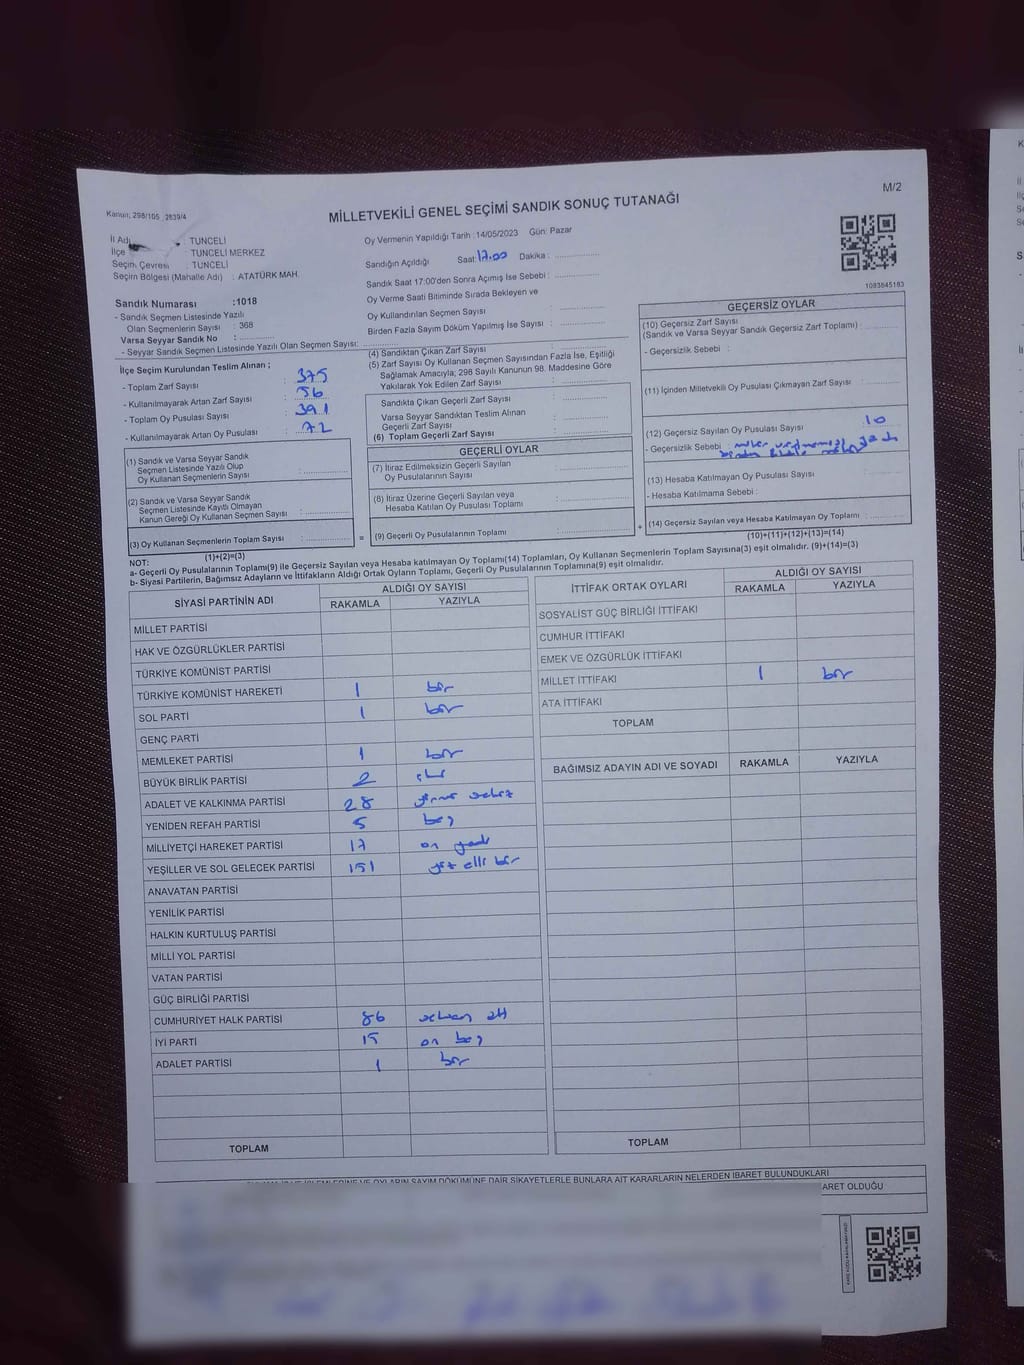 Kanun; 298/105 , 2839/4
MİLLETVEKİLİ GENEL SEÇİMİ SANDIK SONUÇ TUTANAĞI
M/2
İl Adı : TUNCELİ
İlçe : TUNCELİ MERKEZ
Seçim Çevresi : TUNCELİ
Seçim Bölgesi (Mahalle Adı) : ATATÜRK MAH.
Oy Vermenin Yapıldığı Tarih : 14/05/2023 Gün: Pazar
Sandığın Açıldığı Saat: 17.00 Dakika :
Sandık Saat 17:00'den Sonra Açılmış İse Sebebi :
Oy Verme Saati Bitiminde Sırada Bekleyen ve
Oy Kullandırılan Seçmen Sayısı :
Birden Fazla Sayım Döküm Yapılmış İse Sayısı :
1083845183
Sandık Numarası :1018
- Sandık Seçmen Listesinde Yazılı
Olan Seçmenlerin Sayısı : 368
Varsa Seyyar Sandık No :
- Seyyar Sandık Seçmen Listesinde Yazılı Olan Seçmen Sayısı:
İlçe Seçim Kurulundan Teslim Alınan ;
- Toplam Zarf Sayısı : 375
- Kullanılmayarak Artan Zarf Sayısı : 56
- Toplam Oy Pusulası Sayısı : 391
- Kullanılmayarak Artan Oy Pusulası : 72
(1) Sandık ve Varsa Seyyar Sandık
Seçmen Listesinde Yazılı Olup
Oy Kullanan Seçmenlerin Sayısı :
(2) Sandık ve Varsa Seyyar Sandık
Seçmen Listesinde Kayıtlı Olmayan
Kanun Gereği Oy Kullanan Seçmen Sayısı :
(3) Oy Kullanan Seçmenlerin Toplam Sayısı :
(1)+(2)=(3)
(4) Sandıktan Çıkan Zarf Sayısı :
(5) Zarf Sayısı Oy Kullanan Seçmen Sayısından Fazla İse, Eşitliği
Sağlamak Amacıyla; 298 Sayılı Kanunun 98. Maddesine Göre
Yakılarak Yok Edilen Zarf Sayısı :
Sandıkta Çıkan Geçerli Zarf Sayısı :
Varsa Seyyar Sandıktan Teslim Alınan
Geçerli Zarf Sayısı :
(6) Toplam Geçerli Zarf Sayısı :
GEÇERLİ OYLAR
(7) İtiraz Edilmeksizin Geçerli Sayılan
Oy Pusulalarının Sayısı :
(8) İtiraz Üzerine Geçerli Sayılan veya
Hesaba Katılan Oy Pusulası Toplamı :
= (9) Geçerli Oy Pusulalarının Toplamı : +
GEÇERSİZ OYLAR
(10) Geçersiz Zarf Sayısı
(Sandık ve Varsa Seyyar Sandık Geçersiz Zarf Toplamı) :
- Geçersizlik Sebebi :
(11) İçinden Milletvekili Oy Pusulası Çıkmayan Zarf Sayısı :
(12) Geçersiz Sayılan Oy Pusulası Sayısı : 10
- Geçersizlik Sebebi
(13) Hesaba Katılmayan Oy Pusulası Sayısı :
- Hesaba Katılmama Sebebi :
(14) Geçersiz Sayılan veya Hesaba Katılmayan Oy Toplamı :
(10)+(11)+(12)+(13)=(14)
NOT:
a- Geçerli Oy Pusulalarının Toplamı(9) ile Geçersiz Sayılan veya Hesaba katılmayan Oy Toplamı(14) Toplamları, Oy Kullanan Seçmenlerin Toplam Sayısına(3) eşit olmalıdır. (9)+(14)=(3)
b- Siyasi Partilerin, Bağımsız Adayların ve İttifakların Aldığı Ortak Oyların Toplamı, Geçerli Oy Pusulalarının Toplamına(9) eşit olmalıdır.
SİYASİ PARTİNİN ADI ALDIĞI OY SAYISI
RAKAMLA YAZIYLA
MİLLET PARTİSİ
HAK VE ÖZGÜRLÜKLER PARTİSİ
TÜRKİYE KOMÜNİST PARTİSİ
TÜRKİYE KOMÜNİST HAREKETİ 1 bir
SOL PARTİ 1 bir
GENÇ PARTİ
MEMLEKET PARTİSİ 1 bir
BÜYÜK BİRLİK PARTİSİ 2 iki
ADALET VE KALKINMA PARTİSİ 28 yirmi sekiz
YENİDEN REFAH PARTİSİ 5 beş
MİLLİYETÇİ HAREKET PARTİSİ 17 on yedi
YEŞİLLER VE SOL GELECEK PARTİSİ 151 yüz elli bir
ANAVATAN PARTİSİ
YENİLİK PARTİSİ
HALKIN KURTULUŞ PARTİSİ
MİLLİ YOL PARTİSİ
VATAN PARTİSİ
GÜÇ BİRLİĞİ PARTİSİ
CUMHURİYET HALK PARTİSİ 86 seksen altı
İYİ PARTİ 15 on beş
ADALET PARTİSİ 1 bir
TOPLAM
İTTİFAK ORTAK OYLARI ALDIĞI OY SAYISI
RAKAMLA YAZIYLA
SOSYALİST GÜÇ BİRLİĞİ İTTİFAKI
CUMHUR İTTİFAKI
EMEK VE ÖZGÜRLÜK İTTİFAKI
MİLLET İTTİFAKI 1 bir
ATA İTTİFAKI
TOPLAM
BAĞIMSIZ ADAYIN ADI VE SOYADI RAKAMLA YAZIYLA
TOPLAM
DÖKÜMÜNE DAİR ŞİKAYETLERLE BUNLARA AİT KARARLARIN NELERDEN İBARET BULUNDUKLARI
OLDUĞU